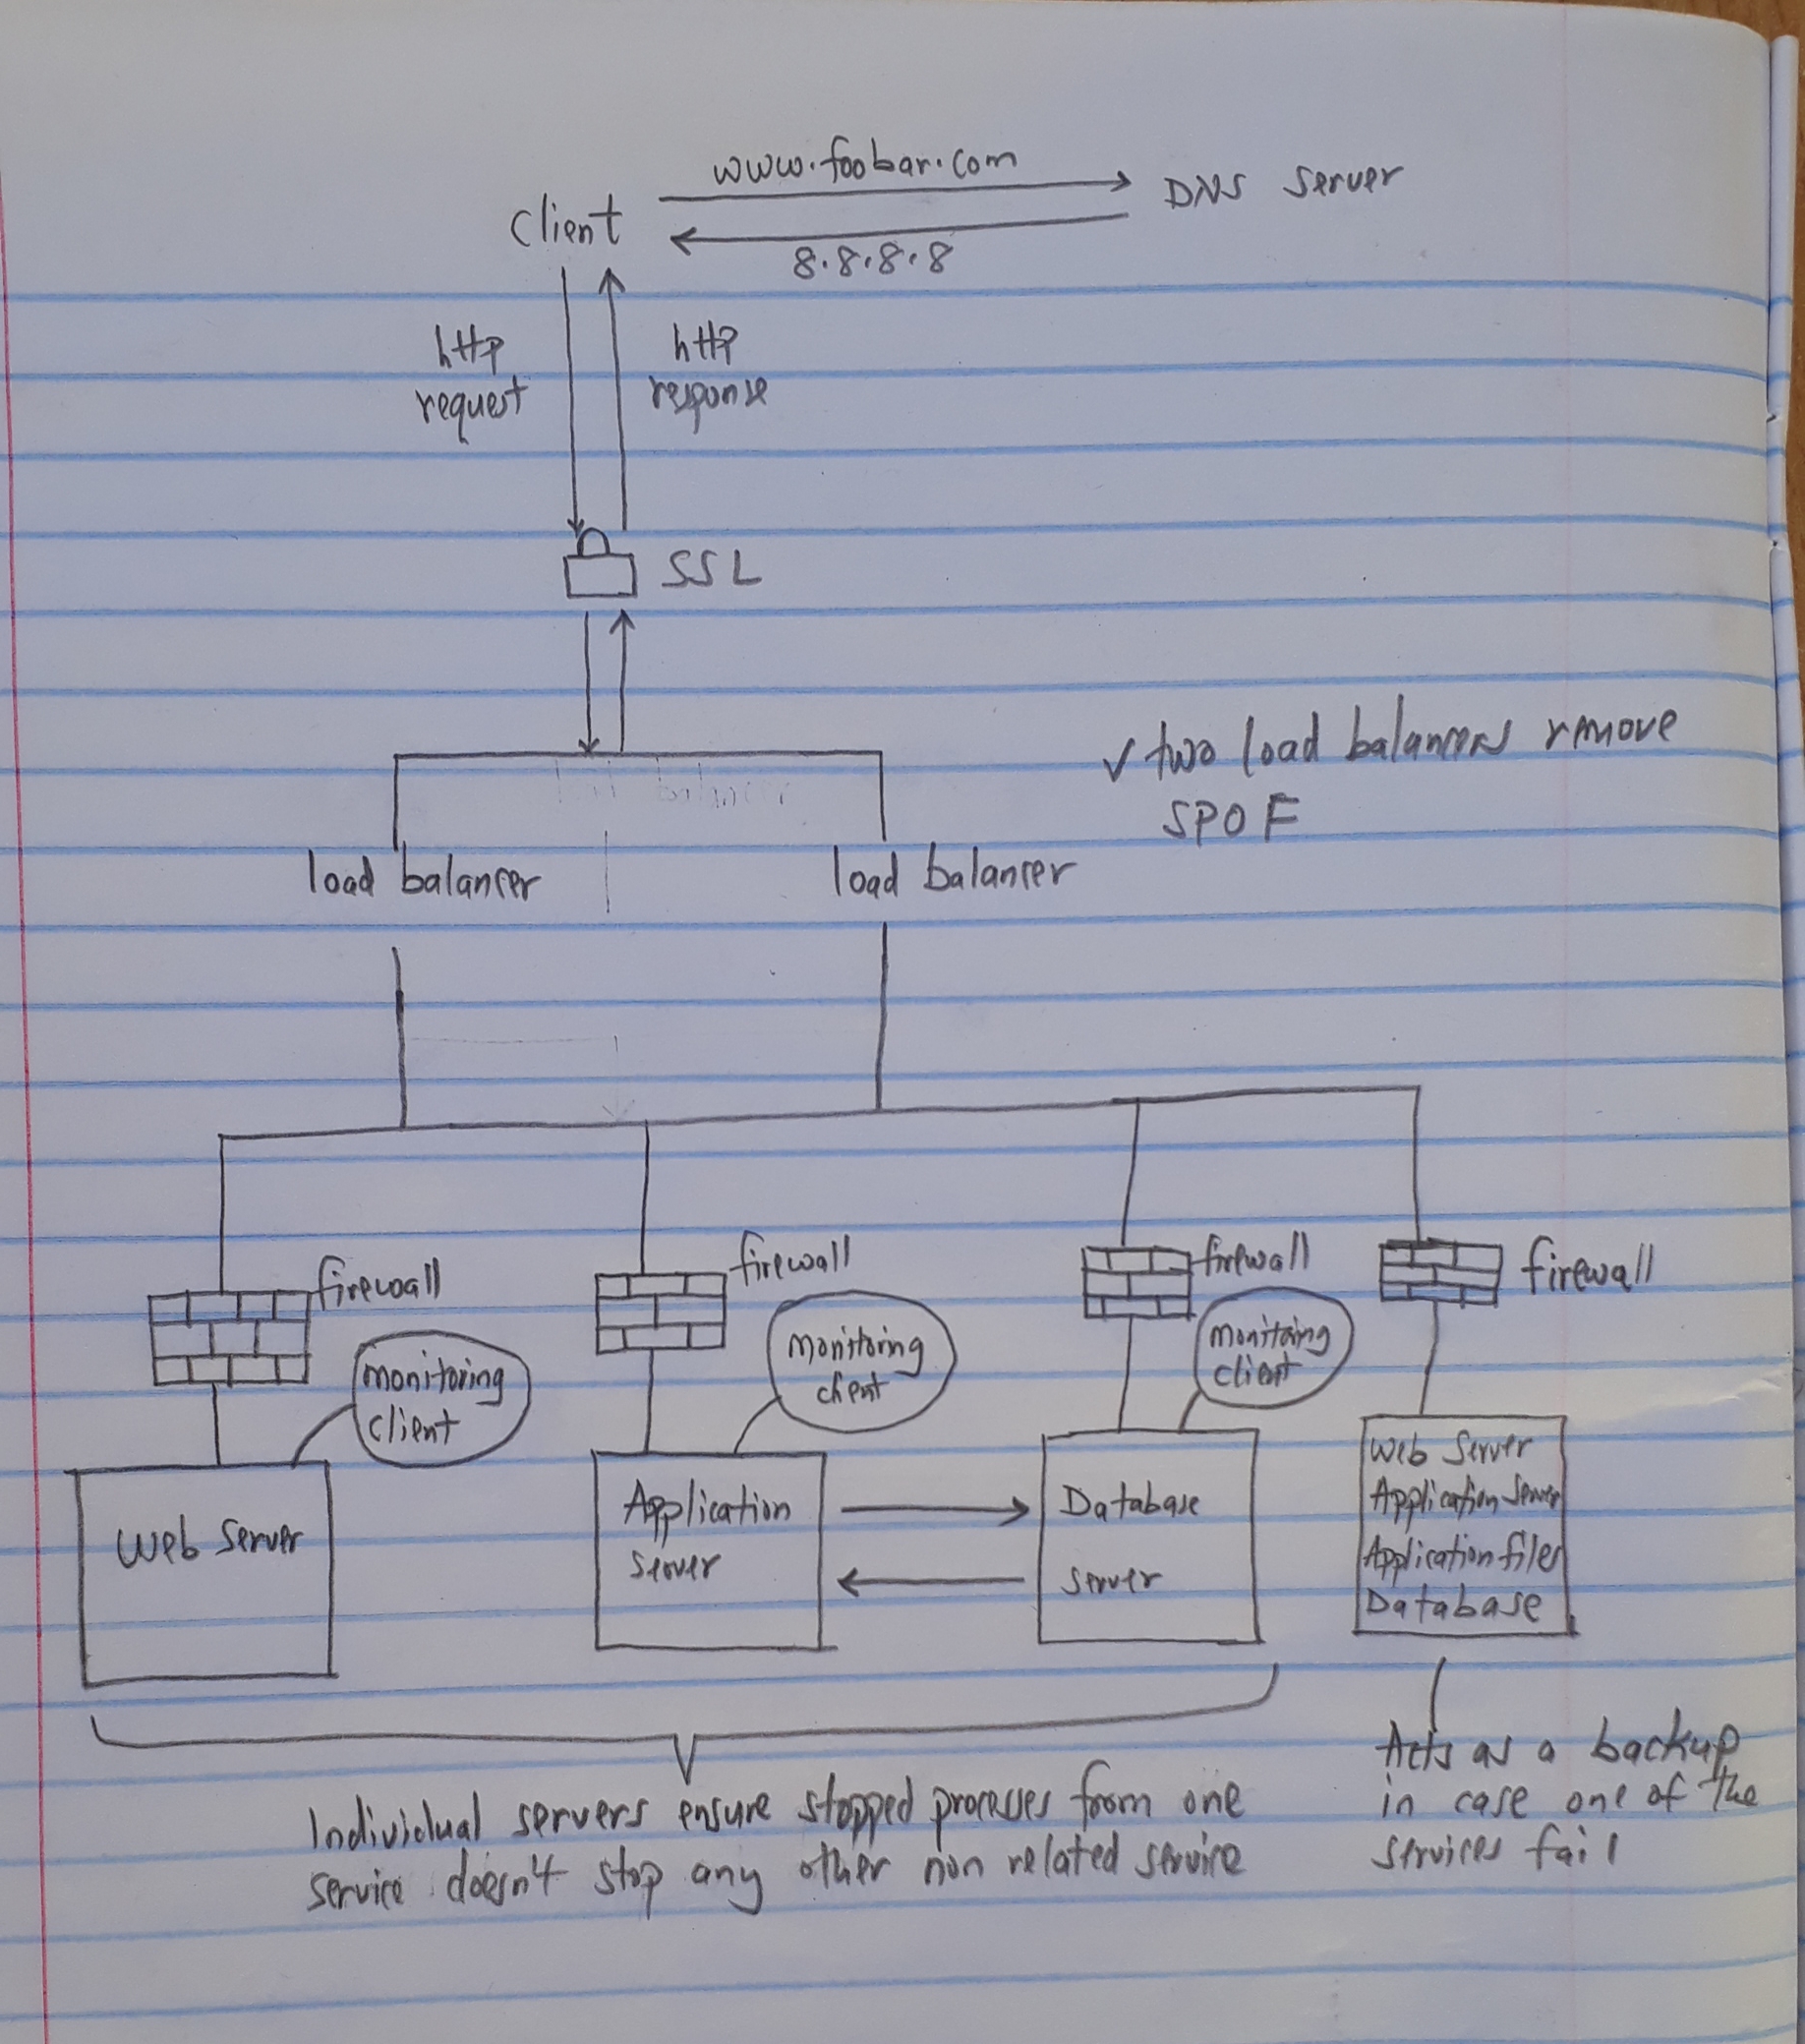 www.foobar.com
Client
DNS Server
8.8.8.8
http
request
http
response
SSL
✓ two load balancers remove
SPOF
load balancer
load balancer
firewall
firewall
firewall
firewall
monitoring
client
monitoring
client
monitoring
client
Web Server
Application
Server
Database
Server
Web Server
Application Server
Application files
Database
Individual servers ensure stopped processes from one
service doesn't stop any other non related service
Acts as a backup
in case one of the
services fail